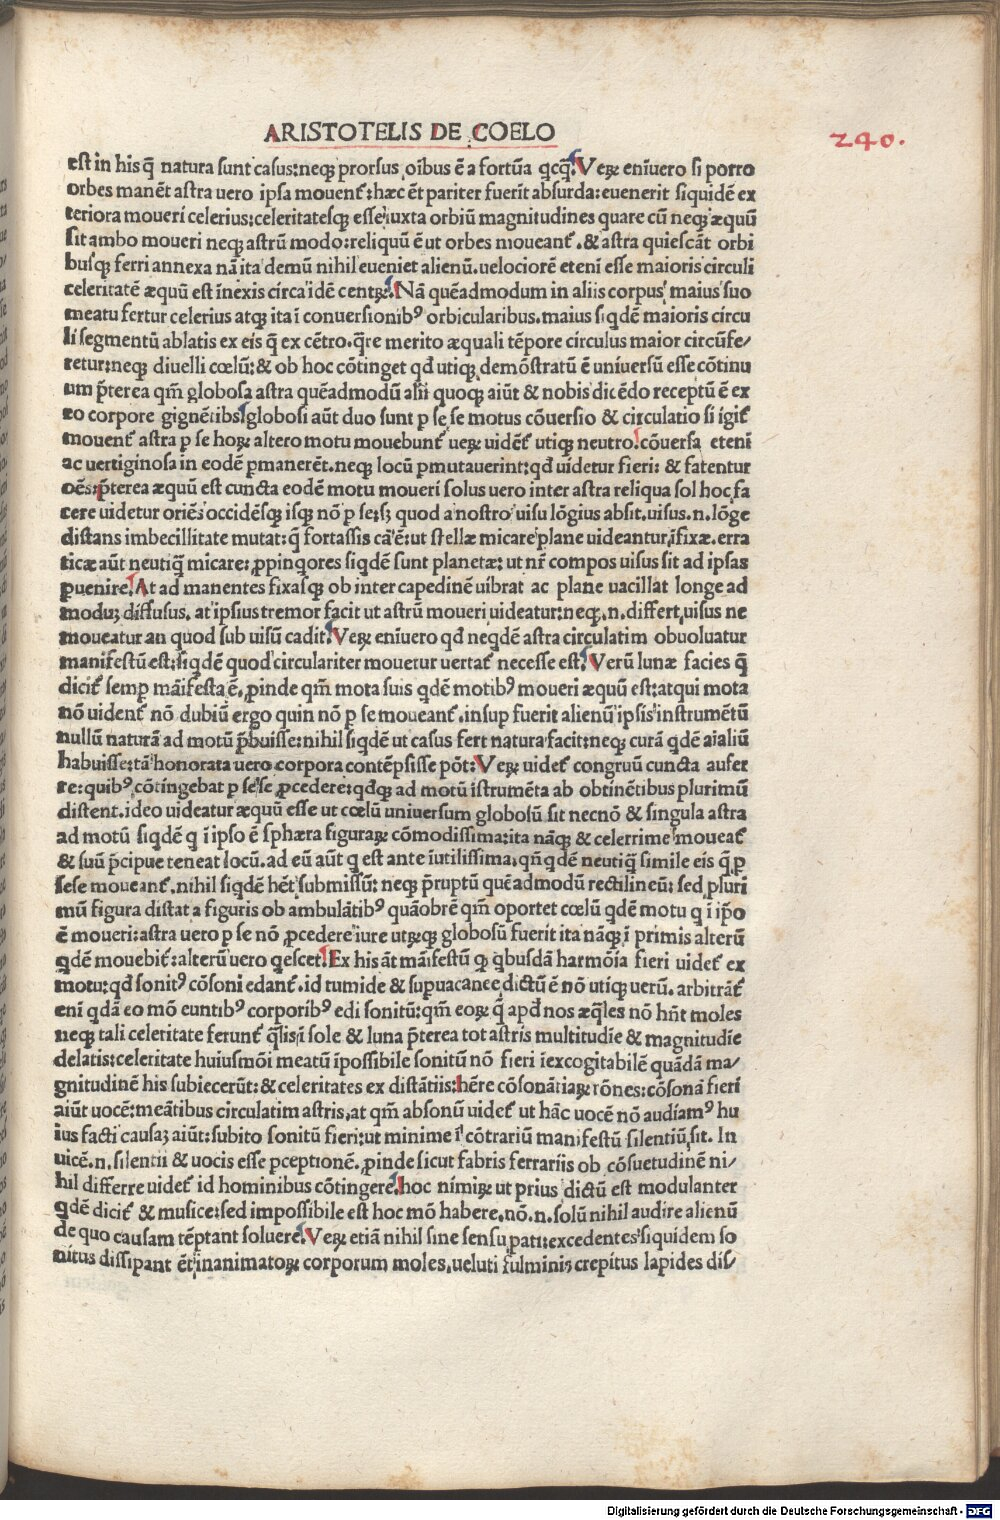 ARISTOTELIS DE COELO
240.
est in his q̄ natura sunt casus: neqȝ prorsus oībus ē a fortūa qcq̄. Veꝝ enīuero si porro
orbes manēt astra uero ipsa mouent̄: hæc ēt pariter fuerīt absurda: euenerit siquidē ex
teriora moueri celerius: celeritatesqȝ esse iuxta orbiū magnitudines quare cū neqȝ æquū
sit ambo moueri neqȝ astrū modo: reliquū ē ut orbes moueant̄. & astra quiescāt orbi
busqȝ ferri annexa nā ita demū nihil eueniet alienū. uelociorē etenī esse maioris circuli
celeritatē æquū est īnexis circa idē centꝝ. Nā quēadmodum in aliis corpus maius suo
meatu fertur celerius atqȝ ita ī conuersionibꝰ orbicularibus. maius siqdē maioris circu
li segmentū ablatis ex eis q̄ ex cētro. q̄re merito æquali tēpore circulus maior circūfe/
retur: neqȝ diuelli cœlū: & ob hoc cōtinget qđ utiqȝ demōstratū ē uniuersū esse cōtinu
um p̄terea qm̄ globosa astra quēadmodū alii quoqȝ aiūt & nobis dicēdo receptū ē ex
eo corpore gignētibs. globosi aūt duo sunt ꝑ se se motus cōuersio & circulatio si igit̄
mouent̄ astra ꝑ se hoꝝ altero motu mouebunt̄ ueꝝ uidēt̄ utiqȝ neutro. cōuersa etenī
ac uertiginosa in eodē ꝑmanerēt. neqȝ locū ꝑmutauerint: qđ uidetur fieri: & fatentur
oēs: p̄terea æquū est cuncta eodē motu moueri solus uero inter astra reliqua sol hoc fa
cere uidetur oriēs occidēsqȝ isqȝ nō ꝑ se: sȝ quod a nostro uisu lōgius absit. uisus .n. lōge
distans imbecillitate mutat: q̄ fortassis cā ē: ut stellæ micare plane uideantur, īfixæ. erra
ticæ aūt neutiq̄ micare: ꝓpinqores siqdē sunt planetæ: ut nr̄ compos uisus sit ad ipsas
ꝑuenire. At ad manentes fixasqȝ ob intercapedinē uibrat ac plane uacillat longe ad
moduȝ diffusus. at ipsius tremor facit ut astrū moueri uideatur: neqȝ .n. differt, uisus ne
moueatur an quod sub uisū cadit. Veꝝ enīuero qđ neqdē astra circulatim obuoluatur
manifestū est: siqdē quod circulariter mouetur uertat̄ necesse est. Verū lunæ facies q̄
dicit̄ semꝑ māifesta ē. ꝓinde qm̄ mota suis qdē motibꝰ moueri æquū est: atqui mota
nō uident̄ nō dubiū ergo quin nō ꝑ se moueant̄. insuꝑ fuerit alienū ipsis instrumētū
nullū naturā ad motū p̄buisse: nihil siqdē ut casus fert natura facit: neqȝ curā qdē aīaliū
habuisse: tā honorata uero corpora contēpsisse pōt: Veꝝ uidet̄ congruū cuncta aufer
re: quibꝰ cōtingebat ꝑ sese ꝓcedere: qdqȝ ad motū īstrumēta ab obtinētibus plurimū
distent. ideo uideatur æquū esse ut cœlū uniuersum globosū sit necnō & singula astra
ad motū siqdē q ī ipso ē sphæra figuraꝝ cōmodissima: ita nāqȝ & celerrime moueat̄
& suū p̄cipue teneat locū. ad eū aūt q est ante īutilissima, qn̄qdē neutiq̄ simile eis q̄ ꝑ
sese moueant̄. nihil siqdē hēt submissū: neqȝ p̄ruptū quēadmodū rectilineū: sed pluri
mū figura distat a figuris ob ambulātibꝰ quāobrē qm̄ oportet cœlū qdē motu q ī ip̄o
ē moueri: astra uero ꝑ se nō ꝓcedere iure utꝝqȝ globosū fuerit ita nāqȝ ī primis alterū
qdē mouebit̄: alterū uero qescet. Ex his āt māifestū qȝ qbusdā harmōia fieri uidet̄ ex
motu: qđ sonitꝰ cōsoni edant̄. id tumide & suꝑuacanee dictū ē nō utiqȝ uerū. arbitrāt̄
enī qdā eo mō euntibꝰ corporibꝰ edi sonitū: qm̄ eoꝝ q̄ apđ nos æq̄les nō hn̄t moles
neqȝ tali celeritate ferunt̄ q̄lis ī sole & luna p̄terea tot astris multitudīe & magnitudīe
delatis: celeritate huiusmōi meatū īpossibile sonitū nō fieri īexcogitabilē quādā ma/
gnitudinē his subiecerūt: & celeritates ex distātiis: hēre cōsonātiaꝝ rōnes: cōsonā fieri
aiūt uocē: meātibus circulatim astris, at qm̄ absonū uidet̄ ut hāc uocē nō audiamꝰ hu
ius facti causaȝ aiūt: subito sonitū fieri: ut minime ī cōtrariū manifestū silentiū sit. In
uicē .n. silentii & uocis esse ꝑceptionē. ꝓinde sicut fabris ferrariis ob cōsuetudinē ni/
hil differre uidet̄ id hominibus cōtingere. hoc nimiꝝ ut prius dictū est modulanter
qdē dicit̄ & musice: sed impossibile est hoc mō habere. nō .n. solū nihil audire alienū
de quo causam tēptant soluere. Veꝝ etiā nihil sine sensu pati: excedentes siquidem so
nitus dissipant ēt inanimatoꝝ corporum moles. ueluti fulminis crepitus lapides dis/
Digitalisierung gefördert durch die Deutsche Forschungsgemeinschaft - DFG